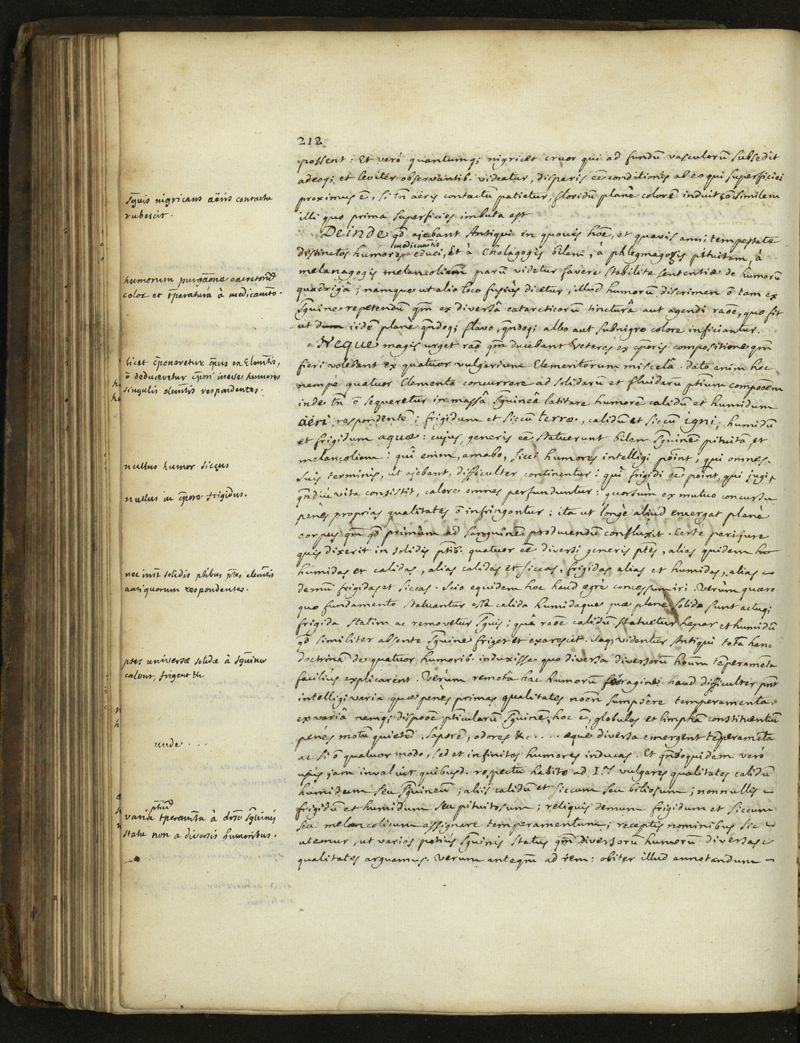 212
possent: Et veró quantumq; nigricet cruor qui ad fundũ vasculorũ subsedit
adeoq; et leviter observantib. videatur, disparis eẽ conditionis ab eo qui superficiei
proximus ẽ, si tñ aëris contactũ patietur, floridũ planè colorẽ induit similem
illi quo prima superficies imbuta est
Sguis nigricans aëris contactu
rubescit.
Deinde qd ajebant Antiqui in quovis hõie, et quavis anni tempestate
distinctos humores educi, Et à Cholagogis bilem, à phlegmagogis pituitam, à
medicinalis
melanagogis melancoliam parũ videtur favere stabilitæ sententiæ de humorũ
quadrigâ; namque ut alio loco fusius dicetur, illud humorũ discrimen õ tam ex
sguine repetendũ qm̃ ex diversâ catarcticorũ tincturâ aut agendi raõe, quo fit
ut iidẽ planè qñdoq; flavo, qñdoq; albo aut subnigro colore inficiantur.
humorum purgãone excretorũ
color et tp̃eratura à medicam̃to.
Neque magis urget raõ qm̃ ducebant Veteres ex cporis compositione qm̃
fieri volebant ex quatuor vulgarium Elementorum miscelâ. dato enim hoc
nempe quatuor Elementa concurrere ad solidarũ et fluidarũ ptium compõem
inde tñ õ sequeretur in massâ Sguineâ latitare humorẽ calidũ et humidum
aëri respondentẽ; frigidum et siccũ terræ, calidũ et siccũ igni; humidũ
et frigidum aquæ: cujus generis eẽ statuerunt bilem Sguinẽ pituitã et
melancoliam: quî enim, amabo, sicci humores intelligi põint, qui omnes
suis terminis, ut ajebant, difficulter continentur: quî frigidi eẽ põint, qui
qñdiu vita consistit, calore omnes perfunduntur: quorsum ex mutuo concursu
penes proprias qualitates õ infringontur; ita ut longè aliud emergat planè
corpus qm̃ qd primùm ad sanguinẽ producendũ confluxit. Certe perjurè
quis dixerit in solidis ptib. quatuor eẽ diversi generis ptes, alias quidem
humidas et calidas, alias calidas et siccas, frigidas alias et humidas, alias
demũ frigidas et siccas. Scio equidem hoc haud ægrè concessum iri. Verùm quæro
quo fundamento statuantur ossa calida humidaque quæ planè solida sunt acluq;
frigida statim ac removetur Sguis; quâ raõe calidũ statuetur hepar et humidũ
qd similiter absente Sguine friget et exarescet. Sanè videntur Antiqui totã hanc
doctrinã de quatuor humorib. induxisse quo diversa diversorũ hoium tp̃erameta
facilius explicarent. Verùm remota hac humorũ farragine haud difficulter
intelligi varia quæ penes primas qualitates noẽn sumpsêre temperamenta.
ex variâ nemq; dispoõe pticularũ Sguinẽ, hoc ẽ, globulos et limphã constituentiũ
penes motũ quietẽ, saporẽ, odores &c... æque diversa emergent tp̃erameta
ac si õ quatuor modo, sed et infinitos humores inducas. Et qñdoquidem veró
usus jam invaluit quibusd. respectu habito ad vulgares qualitates calidũ
humidum seu Sguineũ; aliis calidũ et siccum seu biliosum; nonnullis
frigidũ et humidum seu pituitosum; reliquis demum frigidum et siccum
seu melancolicum assignare temperamentum; receptis nominibus sic
utemur, ut varios potius Sguinis status qm̃ diversorũ humorũ diversas
qualitates arguamus. Verum anteqm̃ ad rem: obiter illud annotandum
licet cponeretur cpus ex Elemtis,
õ deduceretur cpori inesse humores
singulis elemtis respondentes.
nullus humor siccus
nullus in cpore frigidus.
nec insũt solidis ptibus ptes elemtis
antiquorum respondentes.
ptes universæ solidæ à Sguine
calent, frigent &c
unde...
ptiũ
varia tp̃eramta à diverso Sguinis
statu non a diversis humoribus.